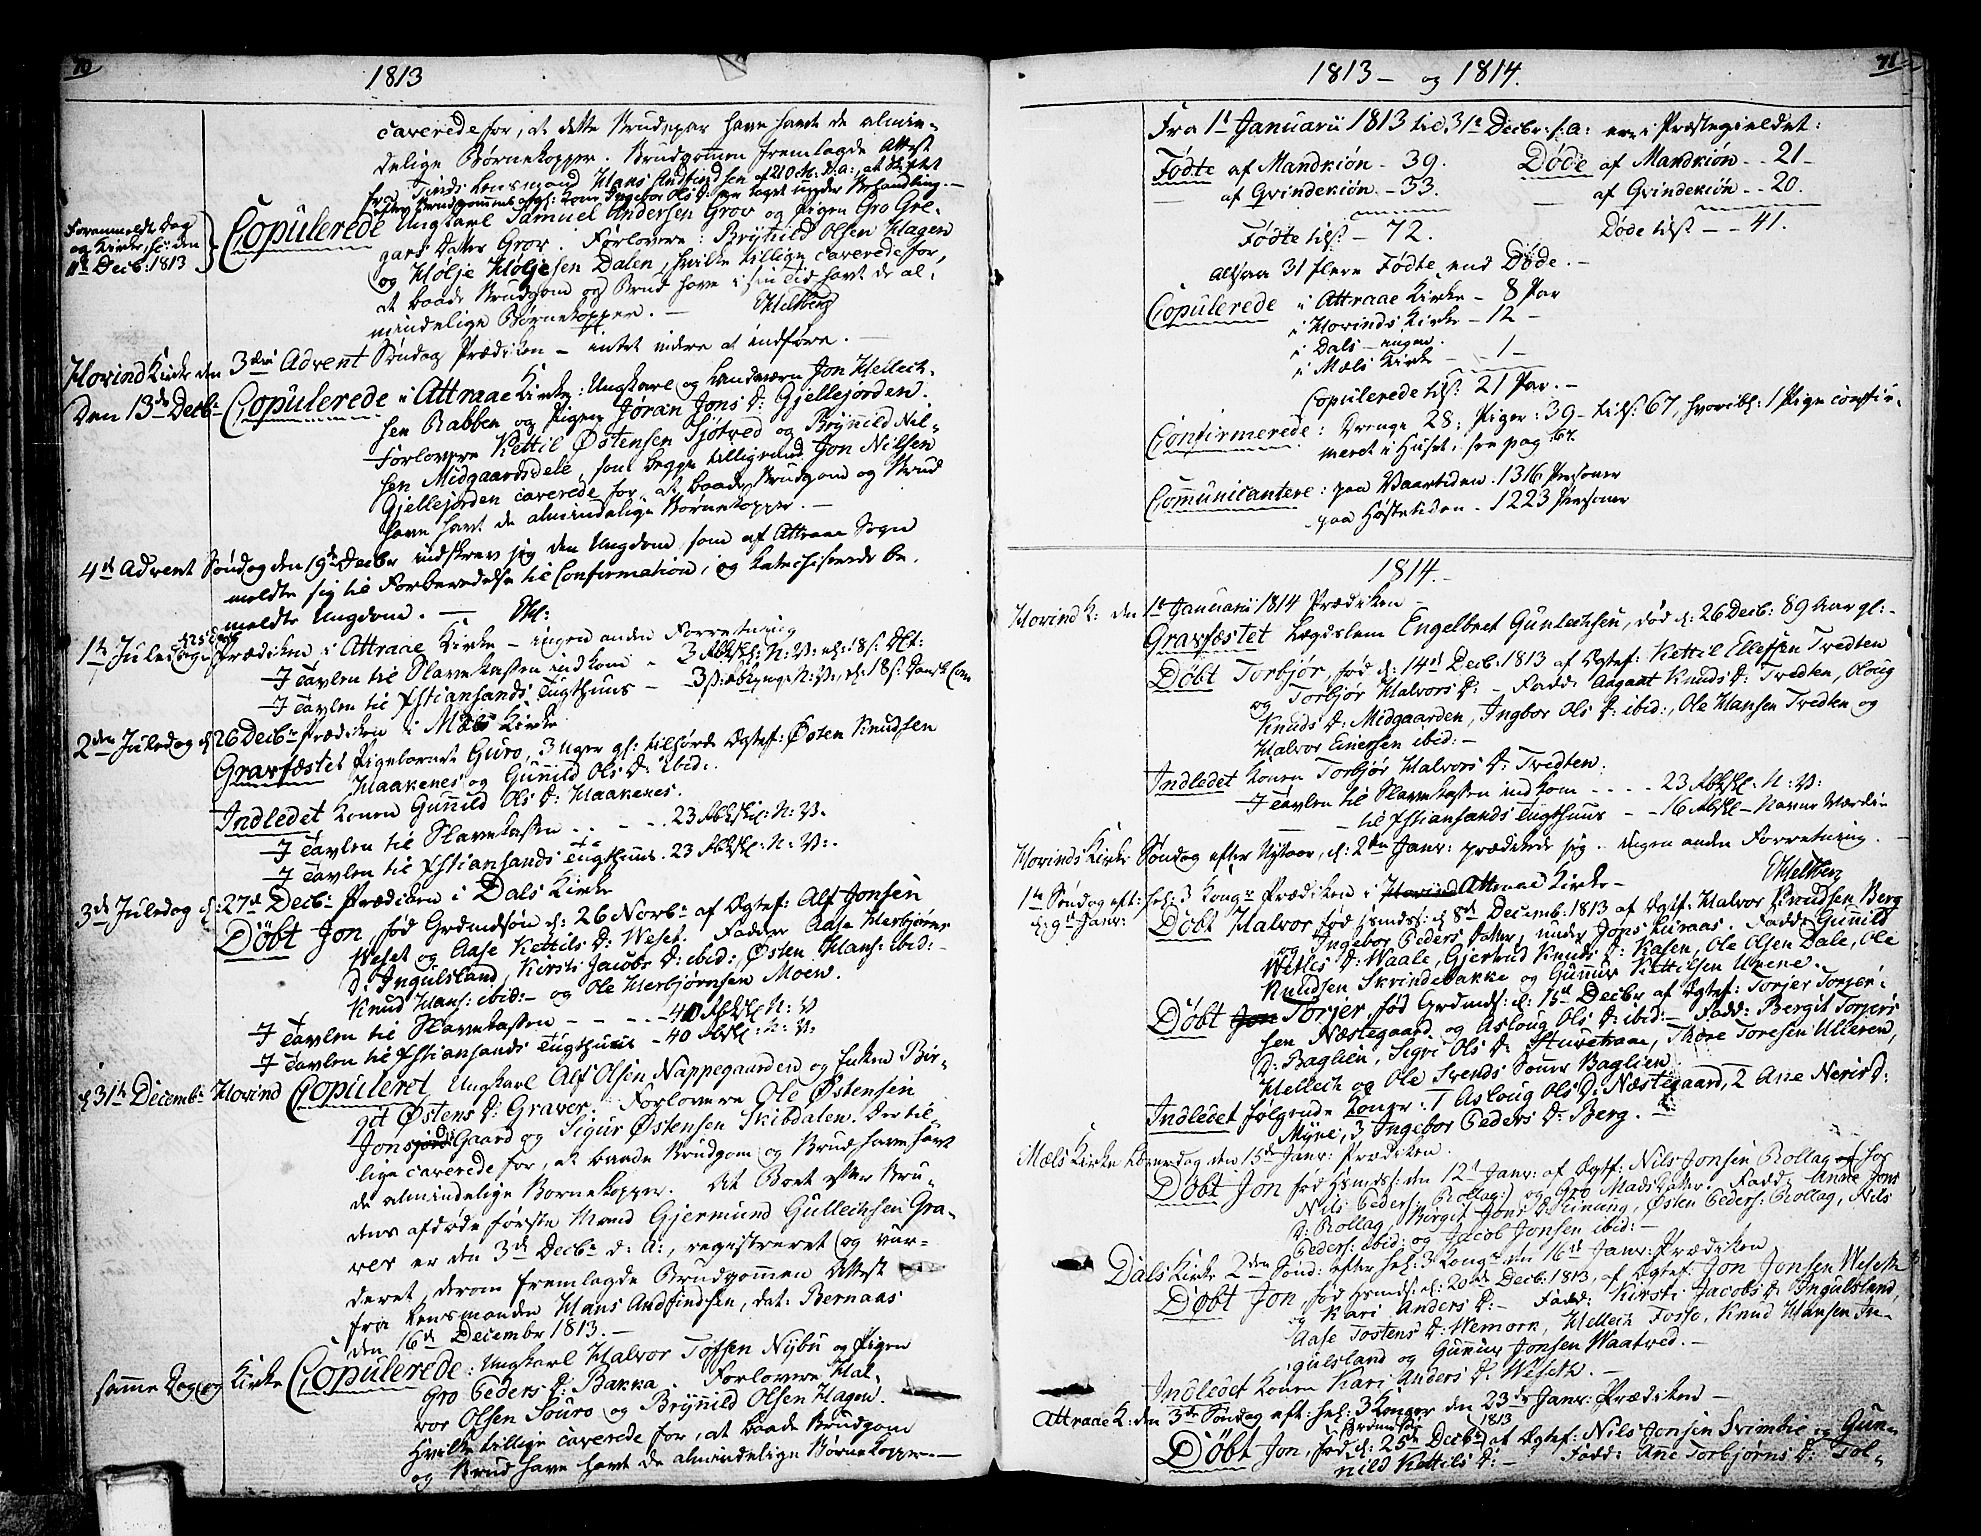 70
1813
caverede for, at dette Brudepar have havt de almin-
delige Børnekopper. Brudgommen fremlagde Attest
fra Tinds Lensmand Hans Andfindsen af 210 M: d: a:, at Skiftet
efter Brudgommens afg: Kone Ingebor Ols D: var taget under Behandling. —
Foranmeldte Dag
og Kirke, sc: den
11te Decb: 1813
Copulerede Ungkarl Samuel Andersen Grov og Pigen Gro Gre-
gars Datter Grov. Forlovere: Brynild Olsen Hagen
og Hølje Høljesen Dalen, hvilke tillige caverede for,
at baade Brudgom og Brud have i sin Tid havt de al-
mindelige Børnekopper. —
Hovind Kirke den 3die Advent Søndag Prædiken — intet videre at indføre. —
Den 13de Decbr Copulerede i Attraae Kirke: Ungkarl og Landværn Jon Helleich-
sen Rabben og Pigen Jøran Jons D: Gjellejorden.
Forlovere Kettil Østensen Sjøtved og Brynild Nil-
sen Midgaardsdele, som begge tilligemed Jon Nilsen
Gjellejorden caverede for, at baade Brudgom og Brud
have havt de almindelige Børnekopper. —
4de Advent Søndag den 19de Decbr indskrev jeg den Ungdom som af Attraae Sogn
meldte sig til Forberedelse til Confirmation, og katechiserede be-
meldte Ungdom. —
1te Juledag d: 25 Decb Prædiken i Attraae Kirke — ingen anden Forretning
I Tavlen til Slavekassen indkom - 3 Rbskl: N: V: el: 18 s: Dkt:
I Tavlen til Xstiansands Tugthuus —
2den Juledag d: 26 Decbr Prædiken i Mæls Kirke
Gravfæstet Pigebarnet Guro, 3 Uger gl: tilhørde Ægtef: Østen Knudsen
Haakenes og Gunild Ols D: ibid:.
Indledet Konen Gunild Ols D: Haakenes.
I Tavlen til Slavekassen - - - - . 23 Rbskil: N: V.
I Tavlen til Xstiansands Tugthuus. 23 Rbskl: N: V:.
3de Juledag d: 27de Decbr Prædiken i Dals Kirke
Døbt Jon, fød Grdmdsøn d: 26 Novbr af Ægtef: Alf Jonsen
Weset og Aase Kettils D: Weset. Faddere Aase Herbjørns
D: Ingulsland, Kirsti Jacobs D: ibid:, Østen Hans: ibid:-
Knud Hans: ibid:- og Ole Herbjørnsen Moen.
I Tavlen til Slavekassen - - - - 40 Rbskl N: V
I Tavlen til Xstiansands Tugthuus - 40 Rbskl: N: V:
d 31te Decembr Hovind Copuleret Ungkarl Alf Olsen Nappegaarden og Enken Bir-
git Østens D: Graver. Forlovere Ole Østensen
Jonsgaard og Sigur Østensen Skibdalen der til-
lige caverede for, at baade Brudgom og Brud have havt
de almindelige Børnekopper. At Boet efter Bru-
dens afdøde første Mand Gjermund Gulleichsen Gra-
ver er den 3de Decbr d: A:, registreret og vur-
deret, derom fremlagde Brudgommen Attest
fra Lensmanden Hans Andfindsen, dat: Bernaas
den 16de Decembr 1813. —
samme Dag og Kirke Copulerede: Ungkarl Halvor Tofsen Nybu og Pigen
Gro Peders D: Bakka. Forlovere Hal-
vor Olsen Souro og Brynild Olsen Hagen.
hvilke tillige caverede for, at baade Brudgom
og Brud have havt de almindelige Børnekopper. —
71
1813 — og 1814.
Fra 1te Januarii 1813 til 31te Decbr: s: a: ere i Præstegieldet:
Fødte af Mandkiøn - 39. Døde af Mandkiøn - - 21 -
— af Qvindekiøn - 33. — af Qvindekiøn - - 20.
Fødte tils: - 72. Døde tils: - - 41.
Altsaa 31 flere Fødte end Døde. —
Copulerede i Attraae Kirke - 8 Par
i Hovinds Kirke - 12 -
i Dals - ingen.
i Mæls Kirke - 1 -
Copulerede tils: 21 Par. —
Confirmerede: Drenge 28; Piger: 39 - tils: 67, hvoribl: 1 Pige confir-
meret i Huset, see pag: 67.
Communicantere: paa Vaartiden. 1316 Personer
- paa Høsttiden - 1223 Personer
1814. -
Hovind K: den 1te Januarii 1814 Prædiken -
Gravfæstet Lægslem Engelbret Gunleichsen, død d: 26 Decb: 89 Aar gl: -
Døbt Torbjør, fød d: 14de Decb: 1813 af Ægtef: Kettil Ellefsen Tvedten
og Torbjør Halvors D: - Fadd: Aagaat Knuds D: Tvedten, Oloug
Knuds D: Midgaarden, Ingbor Ols D: ibid:, Ole Hansen Tvedten og
Halvor Einersen ibid: -
Indledet Konen Torbjør Halvors D: Tvedten.
I Tavlen til Slavekassen indkom - - - - 23 Rbskl: N: V:
- til Xstiansands Tugthuus - - 16 Rbskl - Navne Værdie
Hovinds Kirke Søndag efter Nytaar, d: 2den Janr: prædikede jeg. Ingen anden Forretning. -
1te Søndag eft: hel: 3 Kongr Prædiken i Hovind Attraae Kirke -
d: 9de Janr:
Døbt Halvor fød Hsmds: d: 8de Decemb: 1813 af Ægtef: Halvor Knudsen Berg
og Ingebor Peders Datter, under Jons Huraas. Fadd: Gunnild
Wetles D: Waale, Gjertrud Knuds D: Kasen, Ole Olsen Dale, Ole
Knudsen Skrindebakke og Gunnur Kittilsen Urene.
Døbt Jon Torjer, fød Grdmds: d: 15de Decbr af Ægtef: Torjer Torjer-
sen Næstegaard og Asloug Ols D: ibid: - Fadd: Bergit Torjers
D: Baglien, Sigri Ols D: Sturetraae, Thore Toresen Ulleren,
Helleich og Ole Svends Sønner Baglien.
Indledet følgende Koner: 1 Asloug Ols D: Næstegaard, 2 Ane Neris D:
Myre, 3 Ingebor Peders D: Berg. -
Mæls Kirke Løverdag den 15de Janr: Prædiken.
Døbt Jon fød Hsmds: den 12te Janr: af Ægtf: Nils Jonsen Rollag (hos
Nils Peders: Rollag:) og Gro Mads Datter. Fadd: Anne Jons
D: Rollag, Birgit Jons D: Kinung, Østen Peders: Rollag, Nils
Peders: ibid: og Jacob Jonsen ibid: -
Dals Kirke 2den Sønd: efter hel: 3 Kongr den 16de Janr: Prædiken
Døbt Jon, fød Hsmds: d: 20de Decb: 1813, af Ægtef: Jon Jonsen Weseth
og Kari Anders D: - Fadd: Kirsti Jacobs D: Ingulsland,
Aase Tostens D: Wemork, Helleich Fosse, Knud Hansen In-
gulsland og Gunnur Jonsen Waatved.
Indledet Konen Kari Anders D: Weseth. -
Attraae K: den 3de Søndag eft: hel: 3 Konger den 23de Janr: Prædiken -
Døbt Jon, fød d: 25de Decbr 1813 af Ægtef: Nils Jonsen Svimbie og Gun-
nild Kettils D: - Fadd: Ane Torbjørns D: Tol-